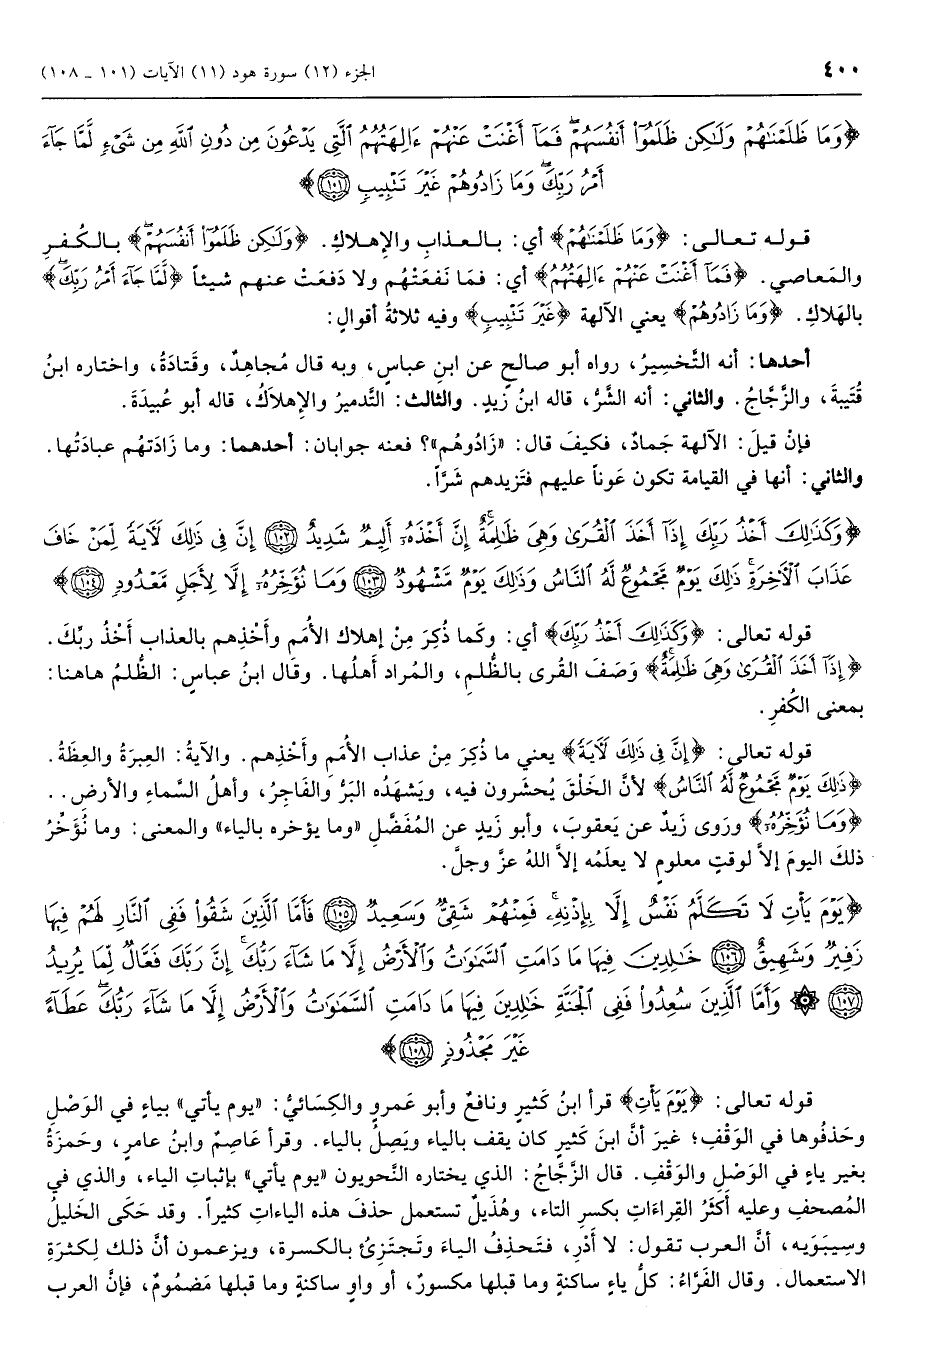 ٤٠٠ الجزء (١٢) سورة هود (١١) الآيات (١٠١ ـ ١٠٨)
﴿وَمَا ظَلَمْنَٰهُمْ وَلَٰكِن ظَلَمُوٓا۟ أَنفُسَهُمْ ۖ فَمَآ أَغْنَتْ عَنْهُمْ ءَالِهَتُهُمُ ٱلَّتِى يَدْعُونَ مِن دُونِ ٱللَّهِ مِن شَىْءٍ لَّمَّا جَآءَ
أَمْرُ رَبِّكَ ۖ وَمَا زَادُوهُمْ غَيْرَ تَتْبِيبٍ ﴿١٠١﴾﴾
قوله تعالى: ﴿وَمَا ظَلَمْنَٰهُمْ﴾ أي: بالعذاب والإهلاك. ﴿وَلَٰكِن ظَلَمُوٓا۟ أَنفُسَهُمْ ۖ﴾ بالكُفرِ
والمَعاصي. ﴿فَمَآ أَغْنَتْ عَنْهُمْ ءَالِهَتُهُمُ﴾ أي: فمَا نَفعَتْهُم ولا دَفعَتْ عنهم شيئاً ﴿لَّمَّا جَآءَ أَمْرُ رَبِّكَ ۖ﴾
بالهَلاكِ. ﴿وَمَا زَادُوهُمْ﴾ يعني الآلهة ﴿غَيْرَ تَتْبِيبٍ﴾ وفيه ثلاثةُ أقوالٍ:
أحدها: أنه التَّخسِيرُ، رواه أبو صالحٍ عن ابنِ عباسٍ، وبه قال مُجاهِدٌ، وقَتادَةُ، واختاره ابنُ
قُتَيبةَ، والزَّجَّاجُ. والثاني: أنه الشَّرُّ، قاله ابنُ زَيدٍ. والثالث: التَّدميرُ والإِهلاكُ، قاله أبو عُبيدَةَ.
فإنْ قيلَ: الآلهة جَمادٌ، فكيفَ قال: «زَادُوهُم»؟ فعنه جوابان: أحدهما: وما زَادَتهُم عبادَتُها.
والثاني: أنها في القيامة تكون عَوناً عليهم فتَزيدهم شَرّاً.
﴿وَكَذَٰلِكَ أَخْذُ رَبِّكَ إِذَآ أَخَذَ ٱلْقُرَىٰ وَهِىَ ظَٰلِمَةٌ ۚ إِنَّ أَخْذَهُۥٓ أَلِيمٌ شَدِيدٌ ﴿١٠٢﴾ إِنَّ فِى ذَٰلِكَ لَءَايَةً لِّمَنْ خَافَ
عَذَابَ ٱلْءَاخِرَةِ ۚ ذَٰلِكَ يَوْمٌ مَّجْمُوعٌ لَّهُ ٱلنَّاسُ وَذَٰلِكَ يَوْمٌ مَّشْهُودٌ ﴿١٠٣﴾ وَمَا نُؤَخِّرُهُۥٓ إِلَّا لِأَجَلٍ مَّعْدُودٍ ﴿١٠٤﴾﴾
قوله تعالى: ﴿وَكَذَٰلِكَ أَخْذُ رَبِّكَ﴾ أي: وكَما ذُكِرَ مِنْ إهلاك الأُمَم وأَخْذِهم بالعذاب أَخْذُ ربِّكَ.
﴿إِذَآ أَخَذَ ٱلْقُرَىٰ وَهِىَ ظَٰلِمَةٌ ۚ﴾ وَصَفَ القرى بالظُّلمِ، والمُراد أَهلُها. وقال ابنُ عباسٍ: الظُّلمُ هاهنا:
بمعنى الكُفرِ.
قوله تعالى: ﴿إِنَّ فِى ذَٰلِكَ لَءَايَةً﴾ يعني ما ذُكِرَ مِنْ عذاب الأُمَمِ وأَخْذِهم. والآيةُ: العِبرَةُ والعِظَةُ.
﴿ذَٰلِكَ يَوْمٌ مَّجْمُوعٌ لَّهُ ٱلنَّاسُ﴾ لأنَّ الخَلْقَ يُحشَرون فيه، ويَشهَدُه البَرُّ والفَاجِرُ، وأهلُ السَّماءِ والأرضِ..
﴿وَمَا نُؤَخِّرُهُۥٓ﴾ ورَوى زَيدٌ عن يَعقوبَ، وأبو زَيدٍ عن المُفَضَّلِ «وما يؤخره بالياء» والمعنى: وما نُؤَخِّرُ
ذلكَ اليومَ إلاَّ لوقتٍ معلومٍ لا يعلَمُه إلاَّ اللهُ عزَّ وجلَّ.
﴿يَوْمَ يَأْتِ لَا تَكَلَّمُ نَفْسٌ إِلَّا بِإِذْنِهِۦ ۚ فَمِنْهُمْ شَقِىٌّ وَسَعِيدٌ ﴿١٠٥﴾ فَأَمَّا ٱلَّذِينَ شَقُوا۟ فَفِى ٱلنَّارِ لَهُمْ فِيهَا
زَفِيرٌ وَشَهِيقٌ ﴿١٠٦﴾ خَٰلِدِينَ فِيهَا مَا دَامَتِ ٱلسَّمَٰوَٰتُ وَٱلْأَرْضُ إِلَّا مَا شَآءَ رَبُّكَ ۚ إِنَّ رَبَّكَ فَعَّالٌ لِّمَا يُرِيدُ
﴿١٠٧﴾ ۞ وَأَمَّا ٱلَّذِينَ سُعِدُوا۟ فَفِى ٱلْجَنَّةِ خَٰلِدِينَ فِيهَا مَا دَامَتِ ٱلسَّمَٰوَٰتُ وَٱلْأَرْضُ إِلَّا مَا شَآءَ رَبُّكَ ۖ عَطَآءً
غَيْرَ مَجْذُوذٍ ﴿١٠٨﴾﴾
قوله تعالى: ﴿يَوْمَ يَأْتِ﴾ قرأ ابنُ كَثيرٍ ونافعٌ وأبو عَمرٍو والكِسَائيُّ: «يوم يأتي» بياءٍ في الوَصْلِ
وحَذفُوها في الوَقْفِ؛ غيرَ أنَّ ابنَ كَثيرٍ كان يقف بالياء ويَصِلُ بالياء. وقرأ عَاصِمٌ وابنُ عامرٍ، وحَمزَةُ
بغير ياءٍ في الوَصْلِ والوَقْفِ. قال الزَّجَّاجُ: الذي يختاره النَّحويون «يوم يأتي» بإثباتِ الياء، والذي في
المُصحَفِ وعليه أَكثَرُ القِراءَاتِ بكَسرِ التاء، وهُذَيلٌ تستعمل حذفَ هذه الياءاتِ كثيراً. وقد حَكَى الخَليلُ
وسِيبَوَيه، أنَّ العرب تقول: لا أَدْرِ، فتَحذِفُ الياءَ وتَجتَزِئُ بالكَسرة، ويزعمون أنَّ ذلك لِكثرَةِ
الاستعمال. وقال الفَرَّاءُ: كلُّ ياءٍ ساكنةٍ وما قبلها مكسورٌ، أو واوٍ ساكنةٍ وما قبلها مَضمُومٌ، فإنَّ العرب